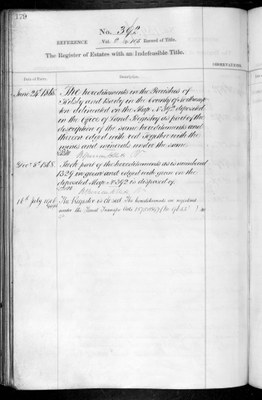 179
No. 392
REFERENCE
Record of Title.
The Register of Estates with an Indefeasible Title.
Date of Entry.
Description.
OBSERVATIONS.
June 24th 1865
The hereditaments in the Parishes of
and in the County of
delineated on the Map No 392 deposited
in the Office of Land Registry as part of the
description of the same hereditaments and
thereon edged with red Together with the
mines and minerals under the same
Decr 4th 1868
Such part of the hereditaments as is numbered
1529 in green and edged with green on the
deposited Map No 392 is disposed of
16th July
The Register is closed The hereditaments are registered
under the Land Transfer Acts